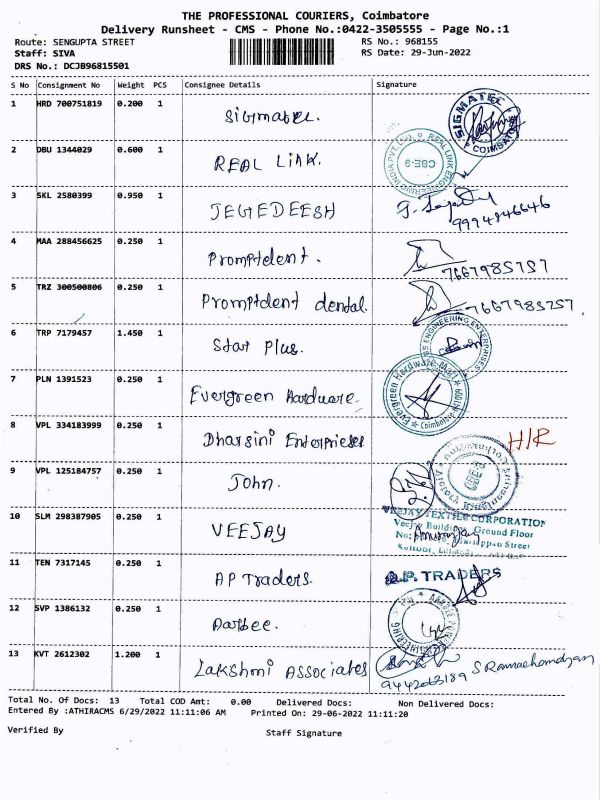 THE PROFESSIONAL COURIERS, Coimbatore
Delivery Runsheet - CMS - Phone No.:0422-3505555 - Page No.:1
Route: SENGUPTA STREET RS No.: 968155
Staff: SIVA RS Date: 29-Jun-2022
DRS No.: DCJB96815501
S No Consignment No Weight PCS Consignee Details Signature
1 HRD 700751819 0.200 1 Sigmatec. SIGMATEC COIMBATORE
2 DBU 1344029 0.600 1 REAL LINK. REAL LINK ENGINEERING INDIA PVT. LTD. CBE-9
3 SKL 2580399 0.950 1 JEGEDEESH 9994846646
4 MAA 288456625 0.250 1 Promptdent. 7667985757
5 TRZ 300500806 0.250 1 Promptdent dental. 7667985757.
6 TRP 7179457 1.450 1 Star Plus. ENGINEERING ENTERPRISES
7 PLN 1391523 0.250 1 Evergreen Hardware. Evergreen Hardware Mart Coimbatore
8 VPL 334183999 0.250 1 Dharsini Enterprises H/R
9 VPL 125184757 0.250 1 John.
10 SLM 298387905 0.250 1 VEEJAY VEEJAY TEXTILE CORPORATION
Veejay Building, Ground Floor
Street
11 TEN 7317145 0.250 1 AP Traders. A.P. TRADERS
12 SVP 1386132 0.250 1
13 KVT 2612302 1.200 1 Lakshmi Associates S Ramachandran
Total No. Of Docs: 13 Total COD Amt: 0.00 Delivered Docs: Non Delivered Docs:
Entered By :ATHIRACMS 6/29/2022 11:11:06 AM Printed On: 29-06-2022 11:11:20
Verified By Staff Signature